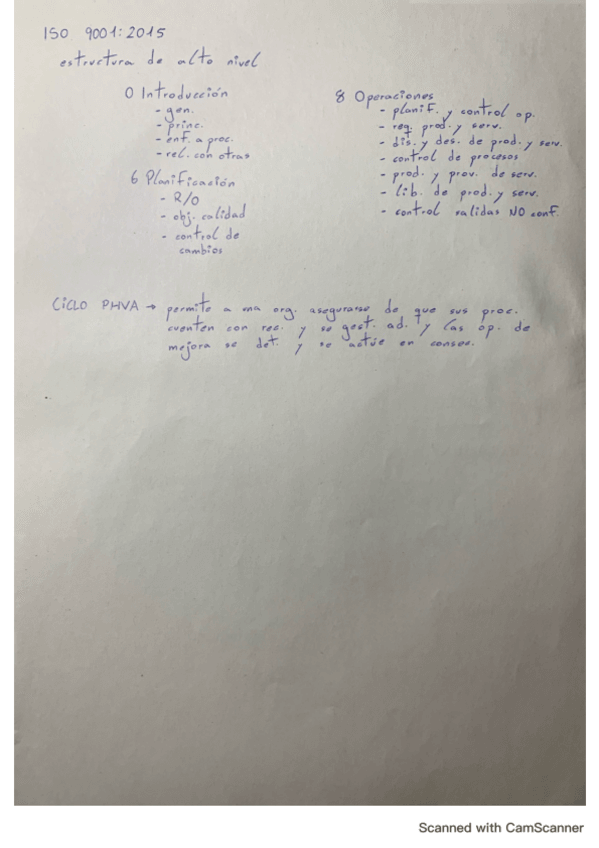 ISO 9001:2015
estructura de alto nivel
0 Introducción
- gen.
- princ.
- enf. a proc.
- rel. con otras
6 Planificación
- R/O
- obj. calidad
- control de
cambios
8 Operaciones
- planif. y control op.
- req. prod. y serv.
- dis. y des. de prod. y serv.
- control de procesos
- prod. y prov. de serv.
- lib. de prod. y serv.
- control salidas NO conf.
CICLO PHVA → permite a una org. asegurarse de que sus proc.
cuenten con rec. y se gest. ad. y las op. de
mejora se det. y se actúe en consec.
Scanned with CamScanner